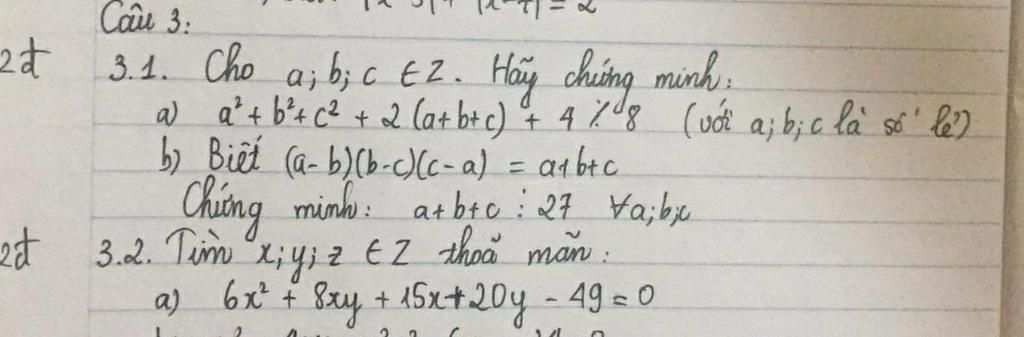 |x-7| = 2
Câu 3:
2đ 3.1. Cho a; b; c ∈ Z. Hãy chứng minh:
a) a² + b² + c² + 2 (a+b+c) + 4 ⋮̸ 8 (với a; b; c là số lẻ)
b) Biết (a-b)(b-c)(c-a) = a+b+c
Chứng minh: a+b+c ⋮ 27 ∀a;b;c
2đ 3.2. Tìm x; y; z ∈ Z thoã mãn:
a) 6x² + 8xy + 15x + 20y - 49 = 0